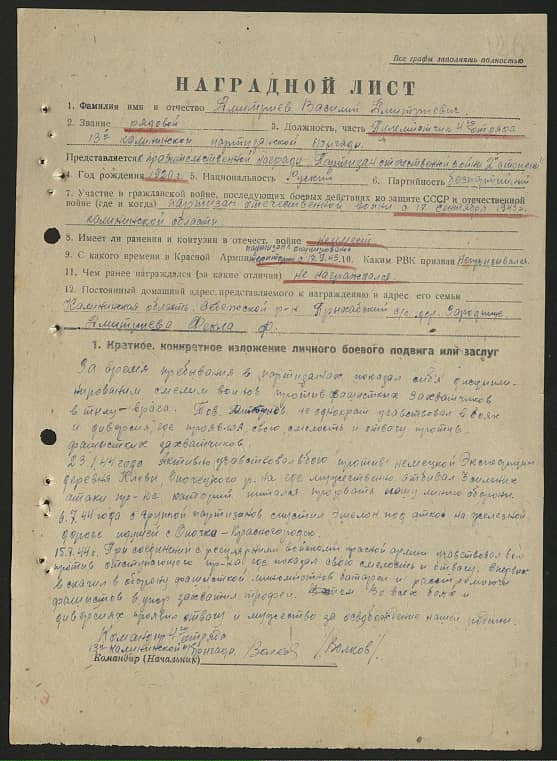 Все графы заполнять полностью
НАГРАДНОЙ ЛИСТ
1. Фамилия имя и отчество Дмитриев Василий Дмитриевич
2. Звание рядовой 3. Должность, часть 4го отряда
13й калининской партизанской бригады
Представляется к правительственной награды Партизан отечественной войны 2й степени
4. Год рождения 1920 г. 5. Национальность Русский 6. Партийность безпартийный
7. Участие в гражданской войне, последующих боевых действиях по защите СССР и отечественной
войне (где и когда) партизан отечественной войны с 17 сентября 1943 г.
калининской области.
8. Имеет ли ранения и контузии в отечест. войне не имеет
9. С какого времени в Красной Армии партизан с 17.9.43. 10. Каким РВК призван Непризывался.
11. Чем ранее награждался (за какие отличия) не награждался.
12. Постоянный домашний адрес представляемого к награждению и адрес его семьи
Калининская область, р-н с/с дер.
Дмитриева Фекла Ф.
1. Краткое, конкретное изложение личного боевого подвига или заслуг
За время пребывания в партизанах показал себя дисципли-
нированым смелым воином против фашистких захватчиков
в тылу врага. Тов. не однократ учавствовал в боях
и диверсия, где проявлял, свою смелость и отвагу против
фашистких захватчиков.
23. 44 года Активно учавствовал в бою против немецкой Экспедиции
деревня Опочецкого р-на где мужественно отбивал
атаки пр-ка который питался прорвать нашу линию обороны.
6.7.44 года с группой партизанов спустил эшелон под откос на железной
дороге идущей с Опочка-Красногородью.
15.7.44 г. При соединении с регулярными войсками красной армии учавствовал в бою
против отступающего пр-ка где показал свою смелость и отвагу.
вскачил в оборону фашисткой минометной батареи и
фашистов в упор захватил трофеи. Во всех боях и
диверсиях проявил отвагу и мужество за освобождение нашей родины.
Командир 4го отряда
13й калининской п/бригады. Волков /Волков/
Командир (Начальник)